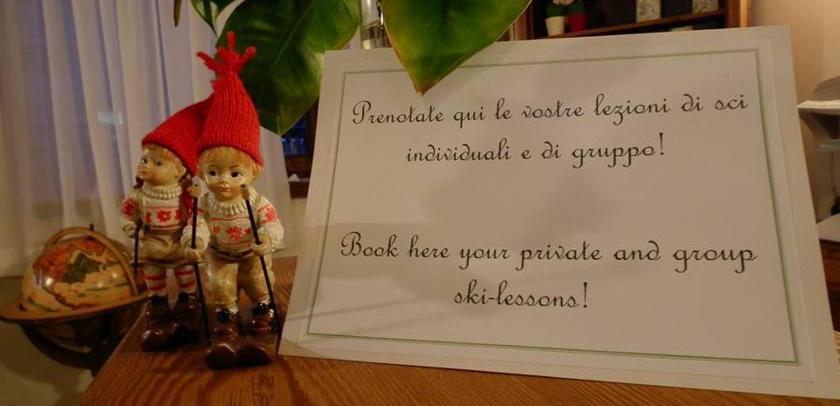 Prenotate qui le vostre lezioni di sci
individuali e di gruppo!
Book here your private and group
ski-lessons!